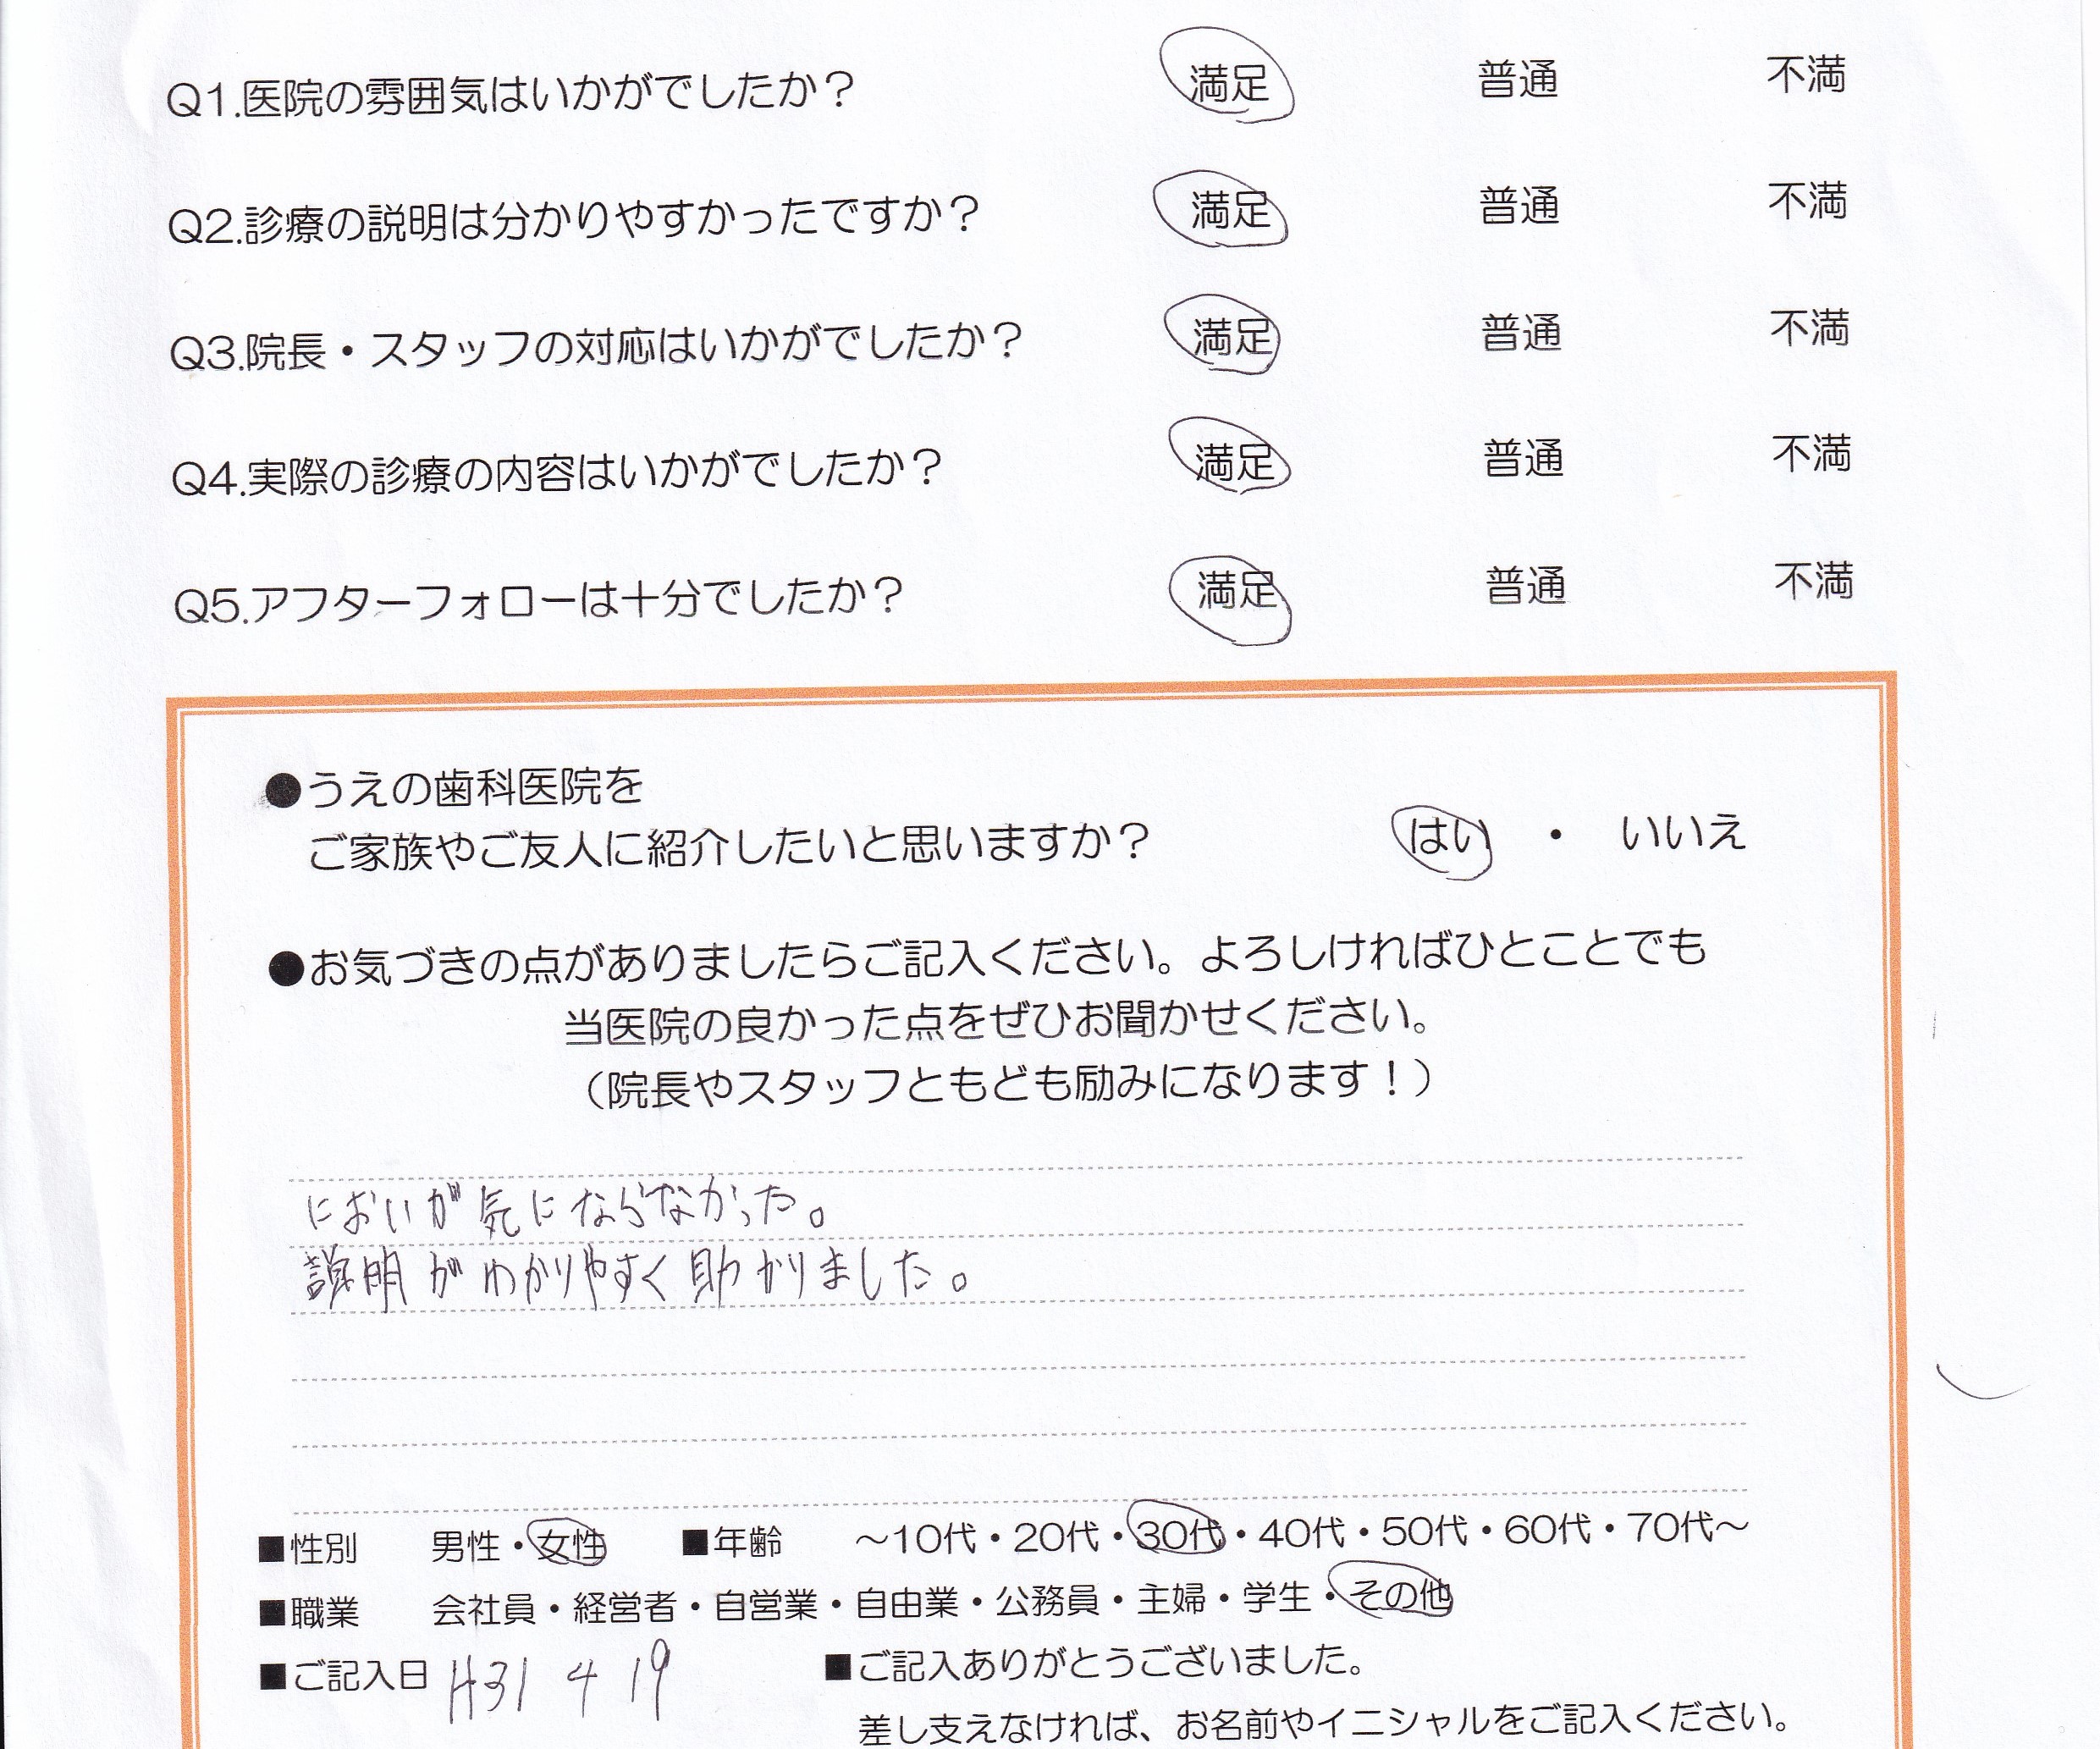 Q1.医院の雰囲気はいかがでしたか？ 満足 普通 不満
Q2.診療の説明は分かりやすかったですか？ 満足 普通 不満
Q3.院長・スタッフの対応はいかがでしたか？ 満足 普通 不満
Q4.実際の診療の内容はいかがでしたか？ 満足 普通 不満
Q5.アフターフォローは十分でしたか？ 満足 普通 不満
●うえの歯科医院を
ご家族やご友人に紹介したいと思いますか？ はい ・ いいえ
●お気づきの点がありましたらご記入ください。よろしければひとことでも
当医院の良かった点をぜひお聞かせください。
（院長やスタッフともども励みになります！）
においが気にならなかった。
説明がわかりやすく助かりました。
■性別 男性・女性 ■年齢 〜10代・20代・30代・40代・50代・60代・70代〜
■職業 会社員・経営者・自営業・自由業・公務員・主婦・学生・その他
■ご記入日 H31 4 19 ■ご記入ありがとうございました。
差し支えなければ、お名前やイニシャルをご記入ください。